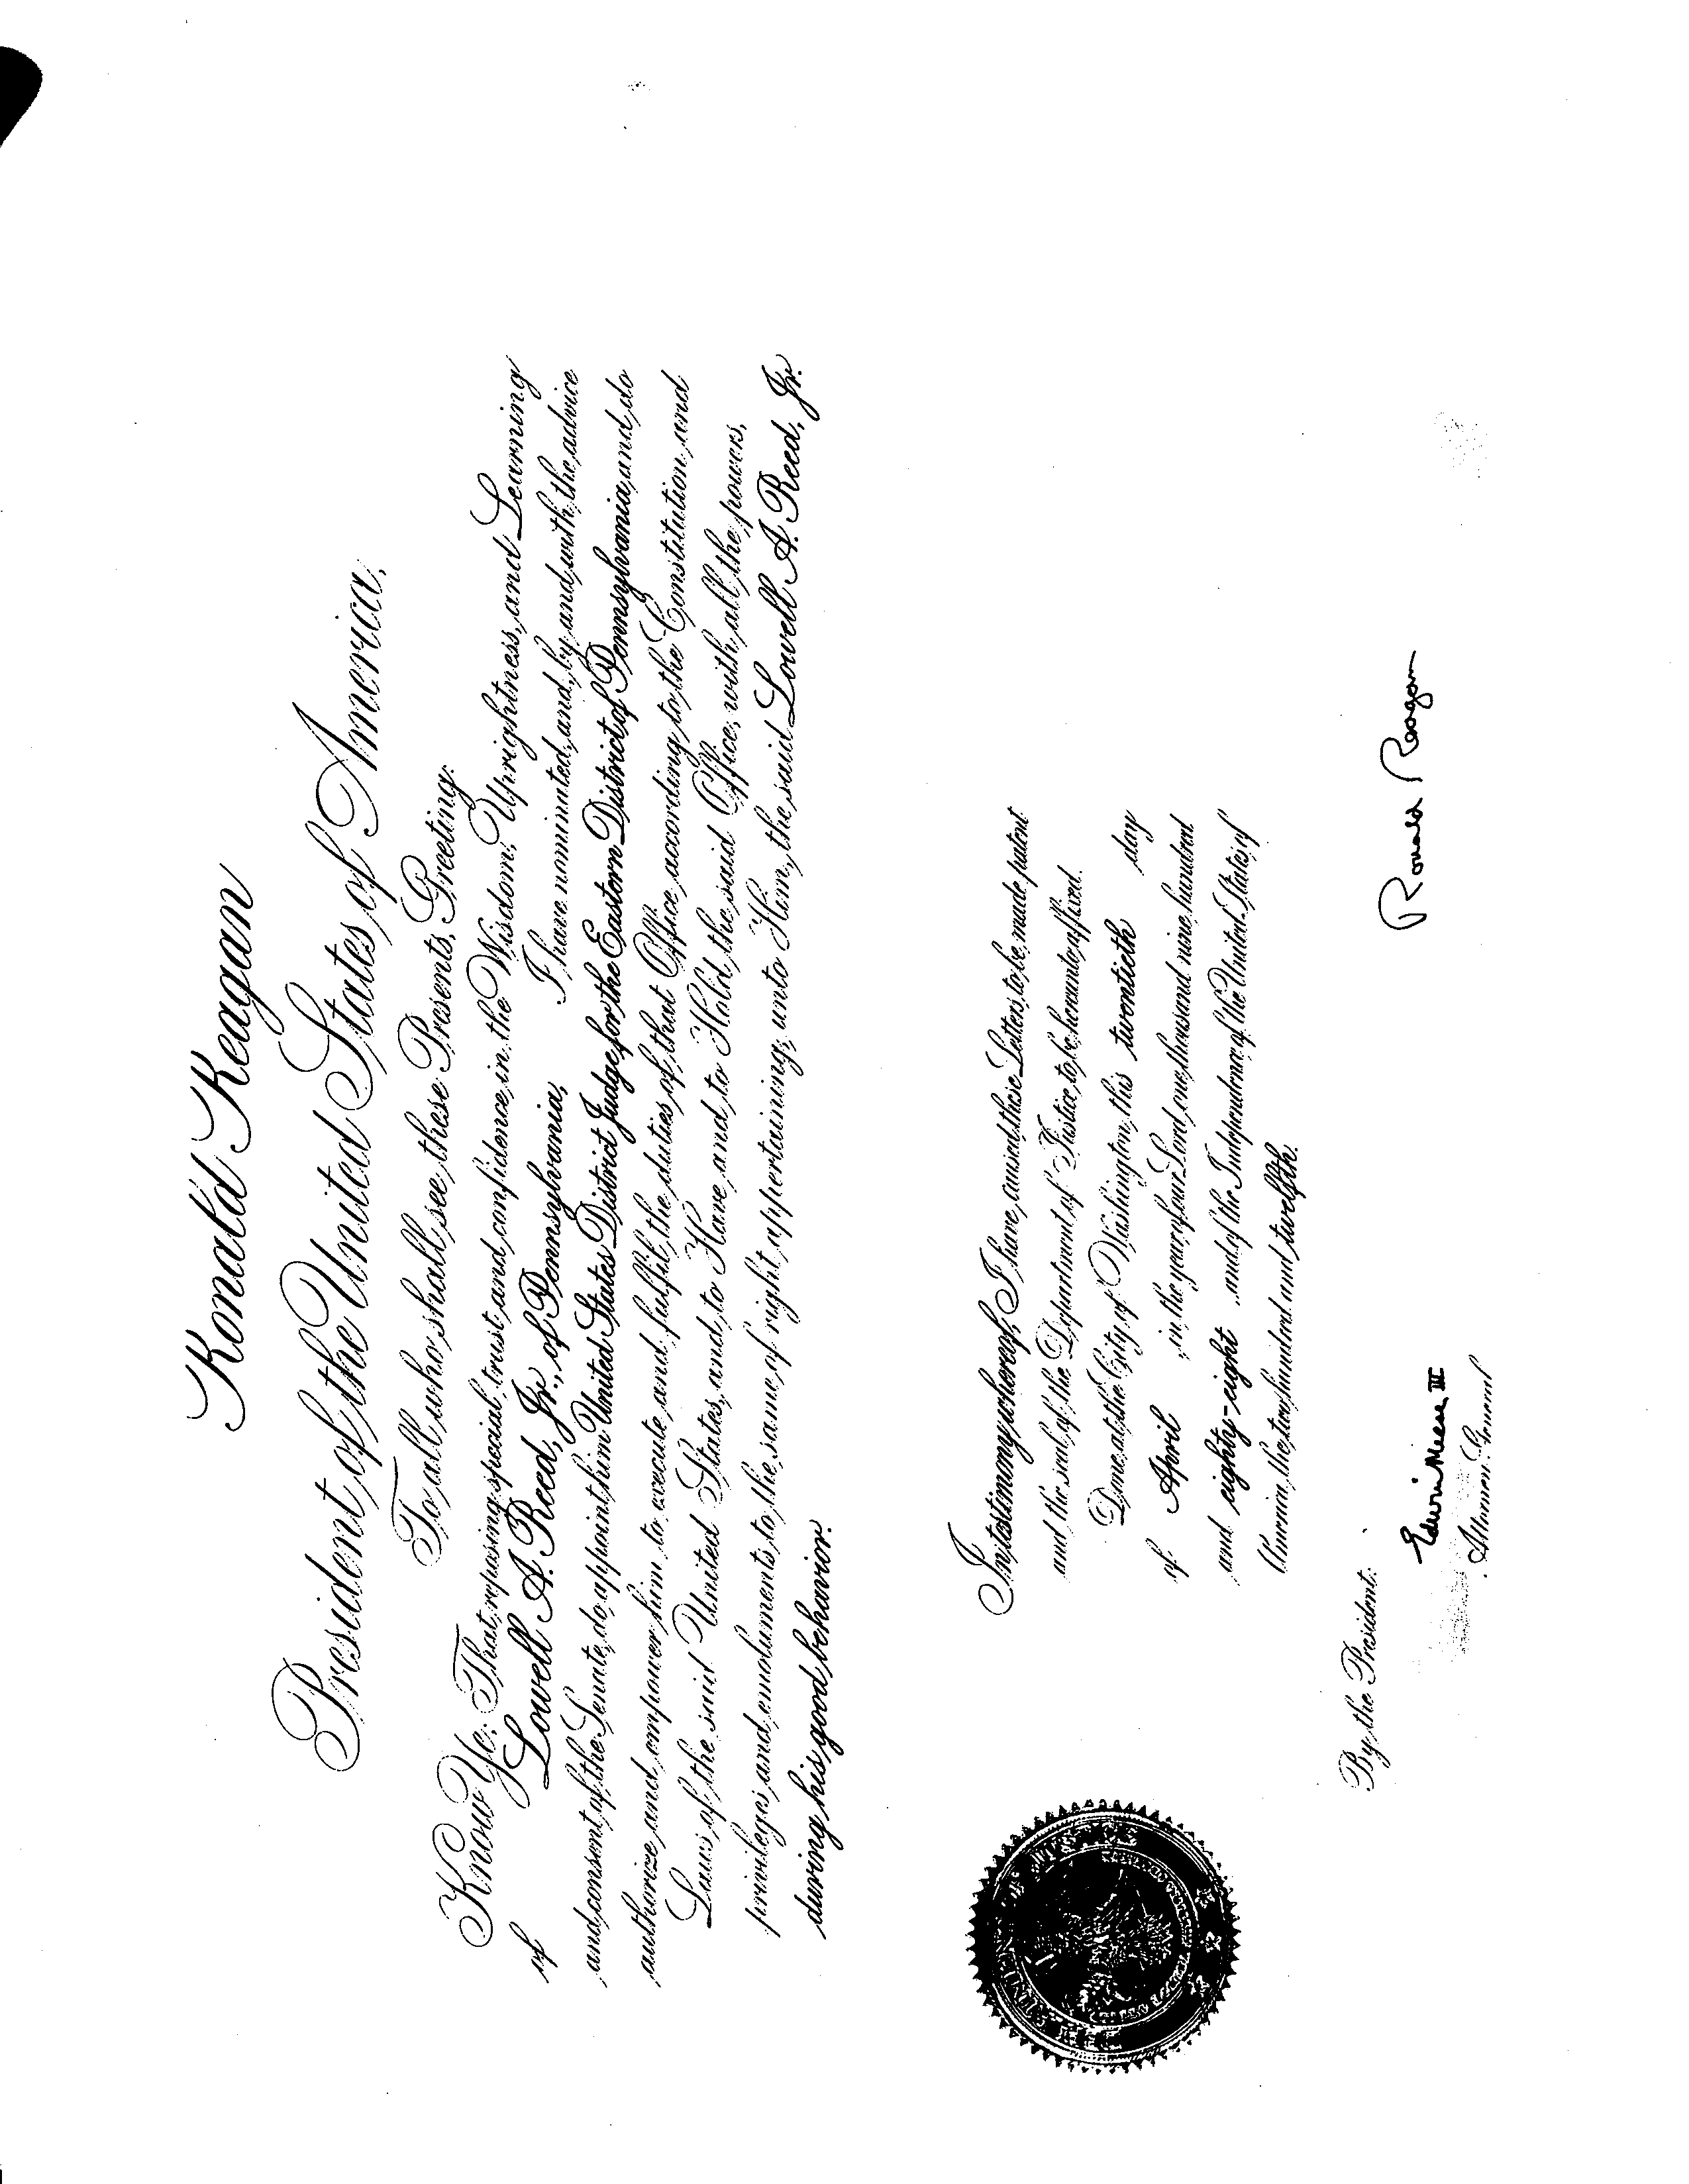 Ronald Reagan
President of the United States of America,
To all who shall see these Presents, Greeting:
Know Ye: That reposing special trust and confidence in the Wisdom, Uprightness, and Learning
of Lowell A. Reed, Jr., of Pennsylvania, I have nominated, and, by and with the advice
and consent of the Senate, do appoint him United States District Judge for the Eastern District of Pennsylvania, and do
authorize and empower him to execute and fulfil the duties of that Office according to the Constitution and
Laws of the said United States, and to Have and to Hold the said Office, with all the powers,
privileges and emoluments to the same of right appertaining, unto Him, the said Lowell A. Reed, Jr.
during his good behavior.
In testimony whereof, I have caused these Letters to be made patent
and the seal of the Department of Justice to be hereunto affixed.
Done at the City of Washington, this twentieth day
of April in the year of our Lord one thousand nine hundred
and eighty-eight, and of the Independence of the United States of
America, the two hundred and twelfth.
Ronald Reagan
By the President:
Edwin Meese III
Attorney General
JUSTICE